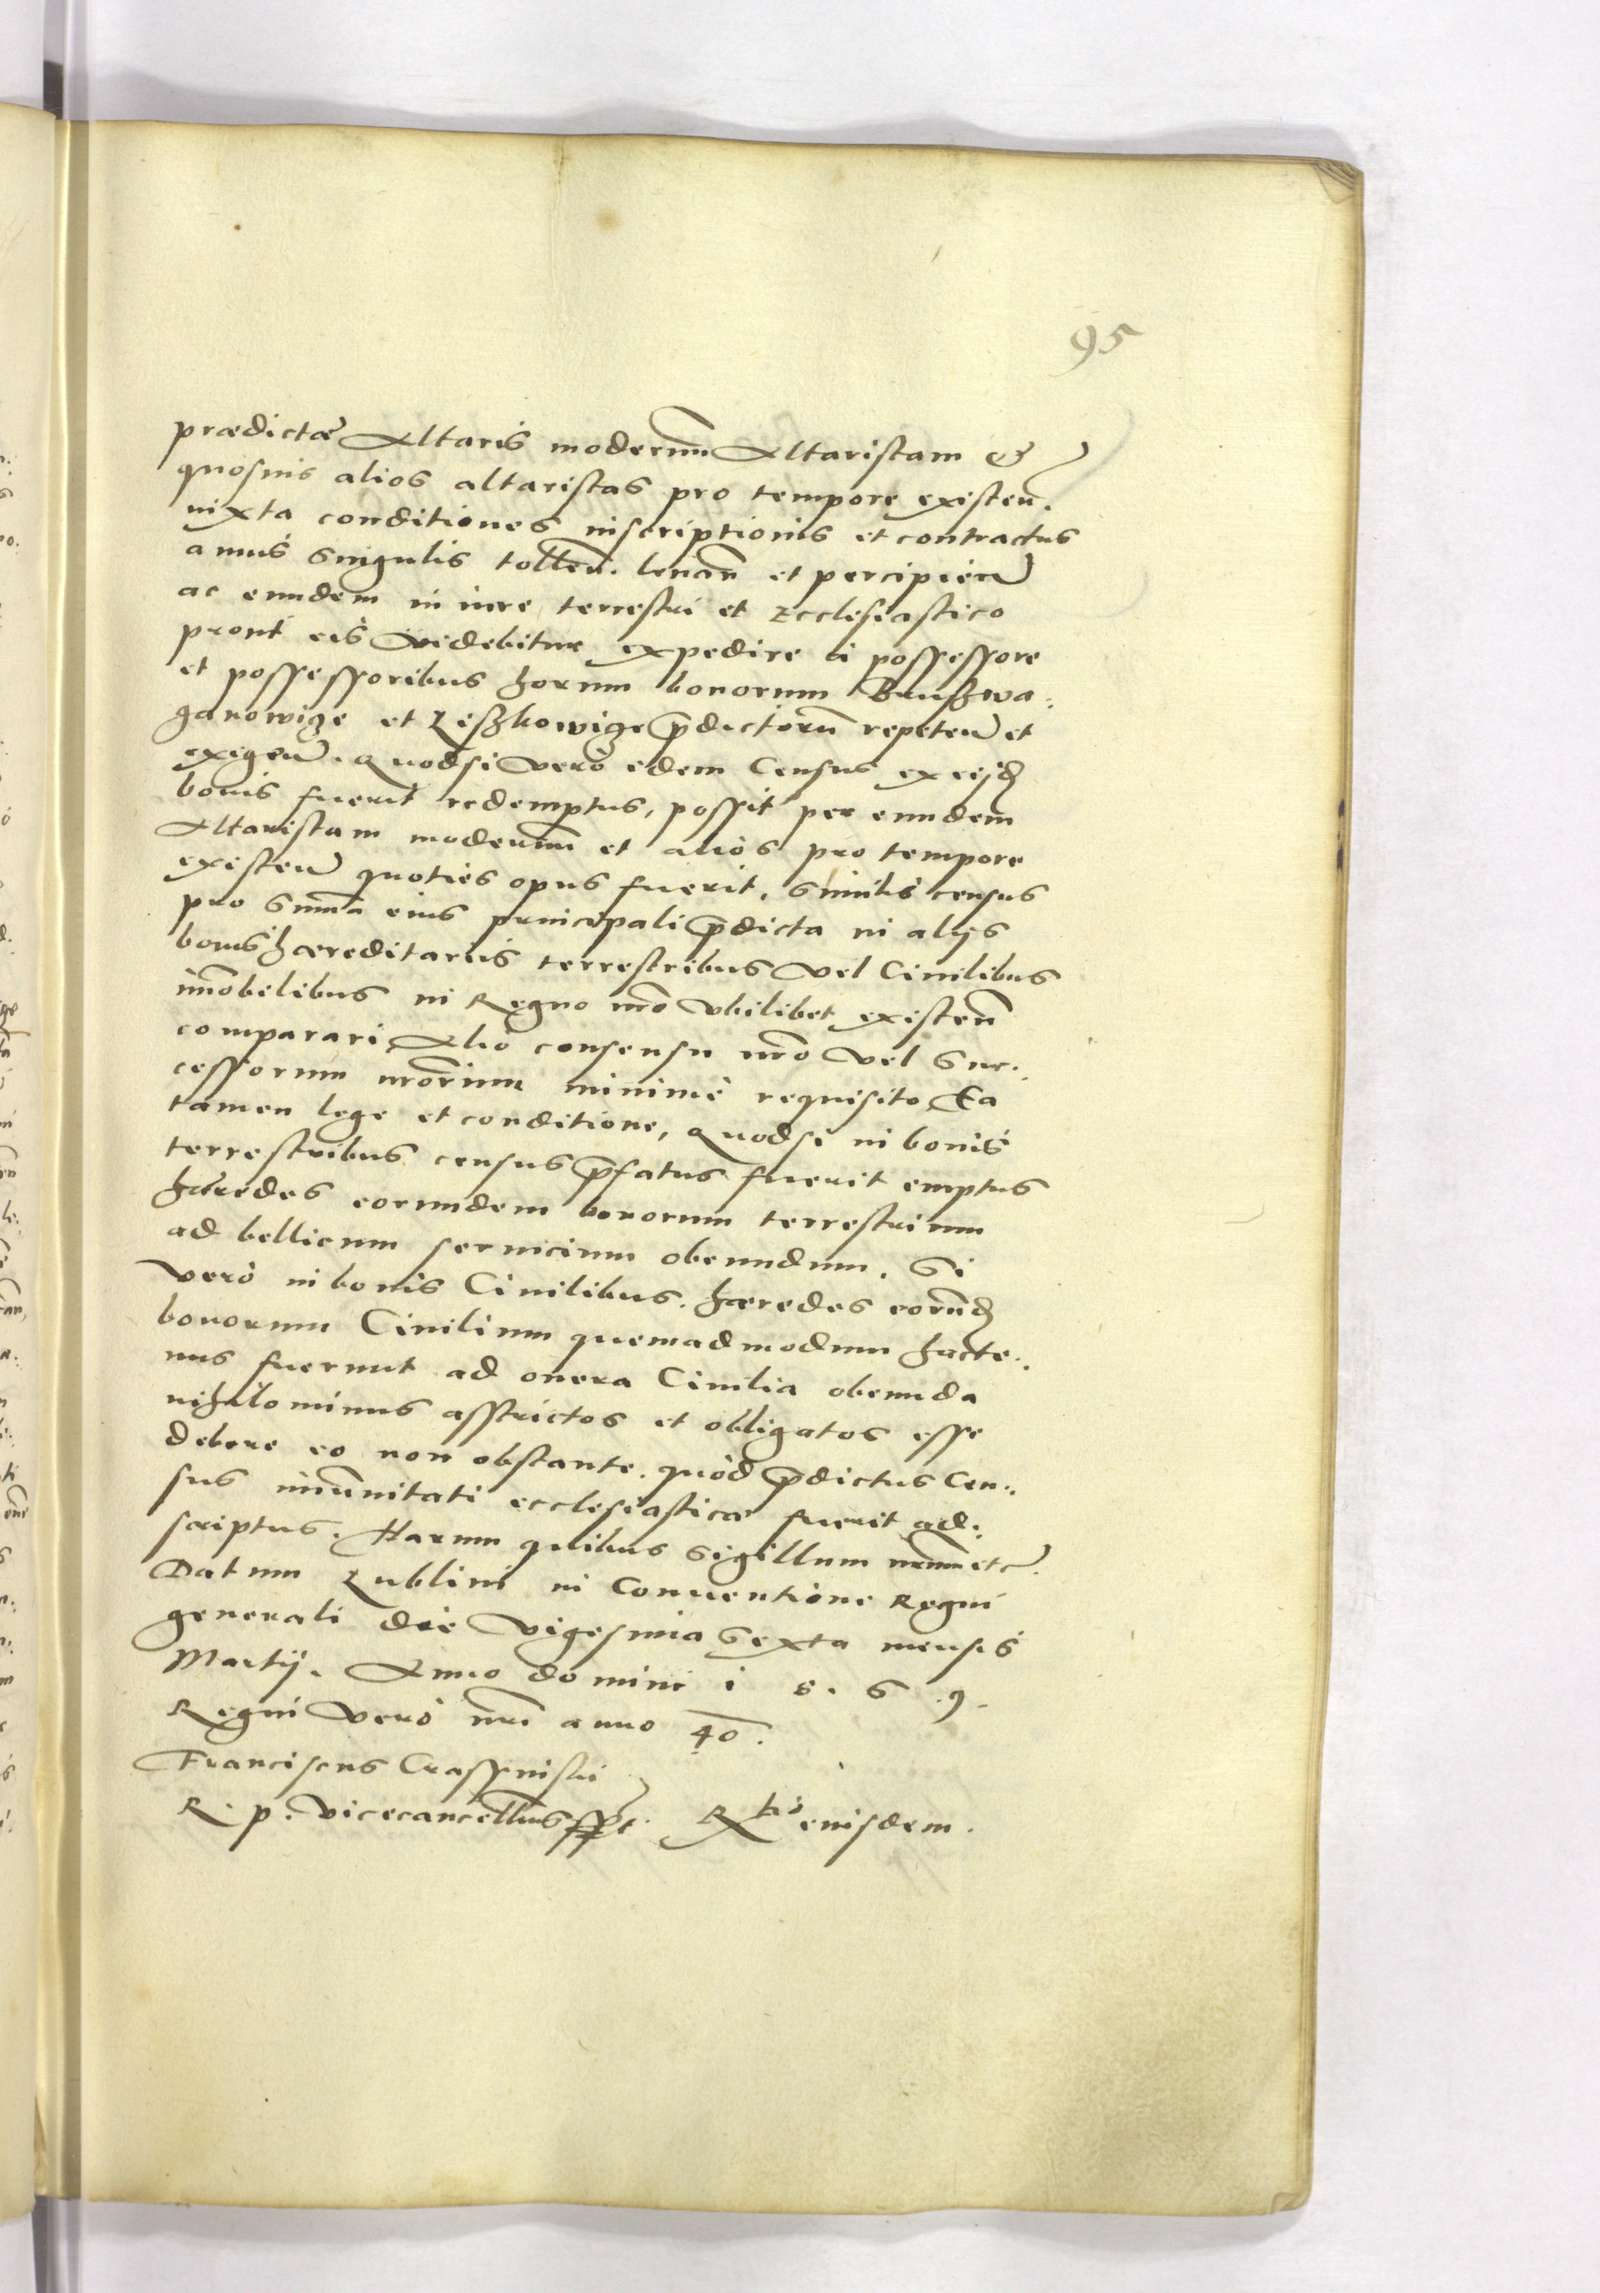 95
prædictæ Altaris modernū Altaristam et
quosuis alios altaristas pro tempore existen̄.
iuxta conditiones inscriptionis et contractus
annis singulis tollen̄. leuan̄ et percipien̄
ac eundem in iure terrestri et Ecclesiastico
prout eis videbitur expedire à possessore
et possessoribus horum bonorum
et p̄dictorū repeten̄ et
exigen̄. Quodsi verò idem Census ex eisd̄
bonis fuerit redemptus, possit per eundem
Altaristam modernū et alios pro tempore
existen̄ quoties opus fuerit, similis census
pro sum̄a eius principali p̄dicta in alijs
bonis hæreditariis terrestribus vel Ciuilibus
im̄obelibus in Regno nr̄o vbilibet existen̄
comparari, Alio consensu nr̄o vel suc:
cessorum nr̄orum minimè requisito, Ea
tamen lege et conditione, Quodsi in bonis
terrestribus census p̄fatus fuerit emptus
hæredes eorundem bonorum terrestrium
ad bellicum seruicium obeundum. Si
verò in bonis Ciuilibus. hæredes eorund̄
bonorum Ciuilium quemadmodum hacte:
nus fuerunt ad onera Ciuilia obeunda
nihilominus asstrictos et obligatos esse
debere eo non obstante. quòd p̄dictus Cen:
sus im̄unitati ecclesiasticæ fuerit ad:
scriptus. Harum quibus sigillum nr̄um etc.
Datum Lublini in Conuentione Regni
generali die vigesima sexta mensis
Martij. Anno domini 1 5. 6 .9.
Regni verò nr̄i anno 40.
Franciscus Crassinski
R. p. vicecancellarius sspt. R̄tio eiusdem.